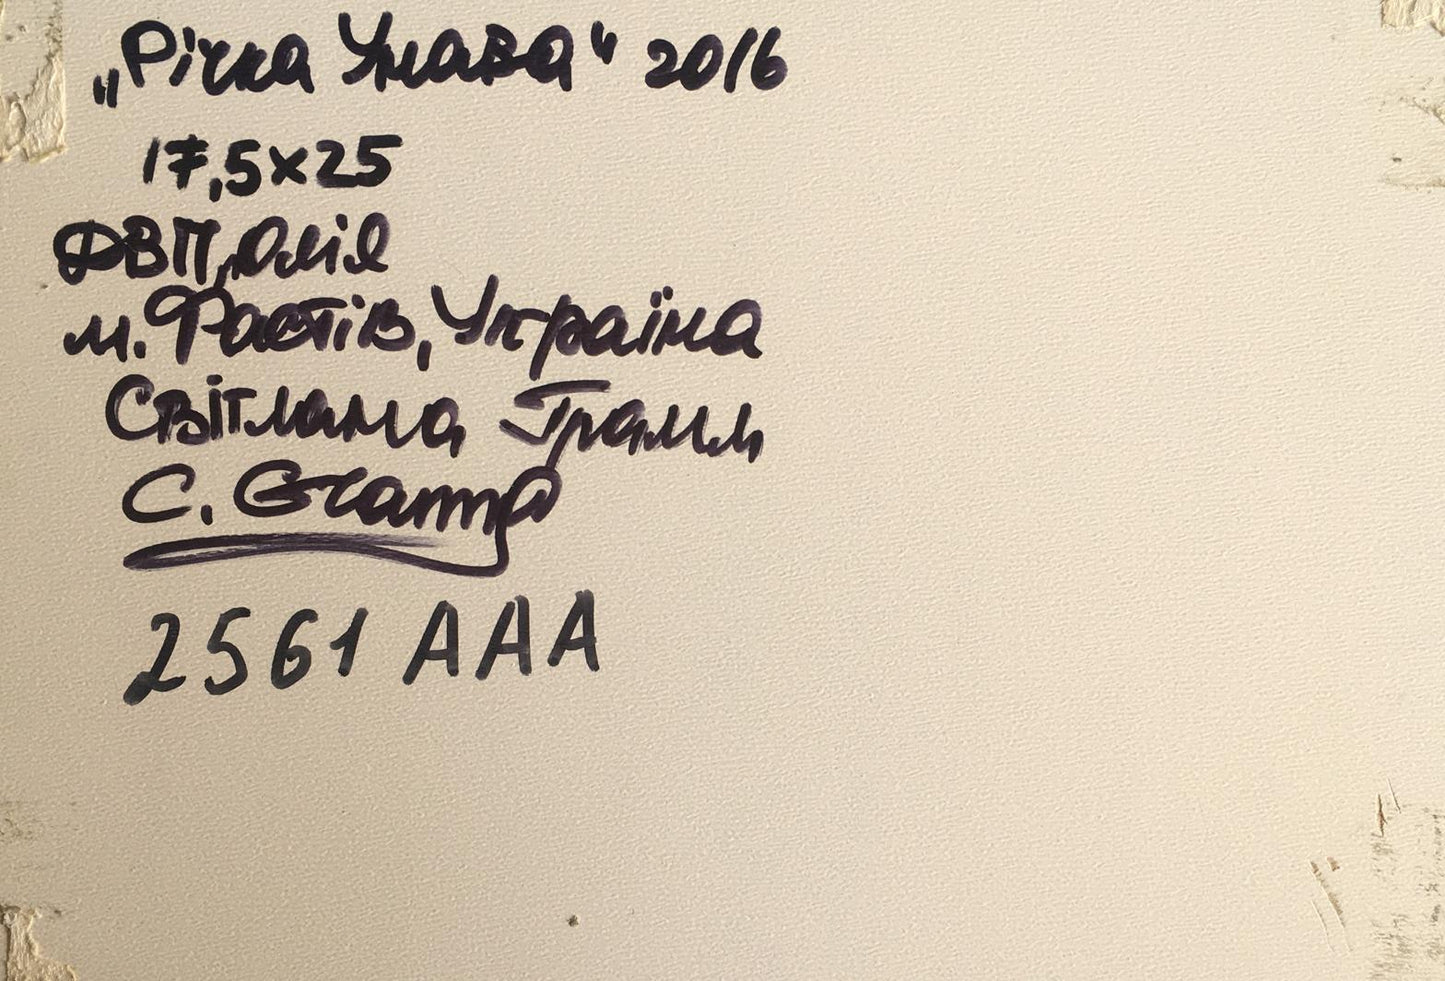 „Річка Унава“ 2016
17,5x25
ДВП, олія
м. Фастів, Україна
Світлана Грамм
C. Gramm
2561 AAA